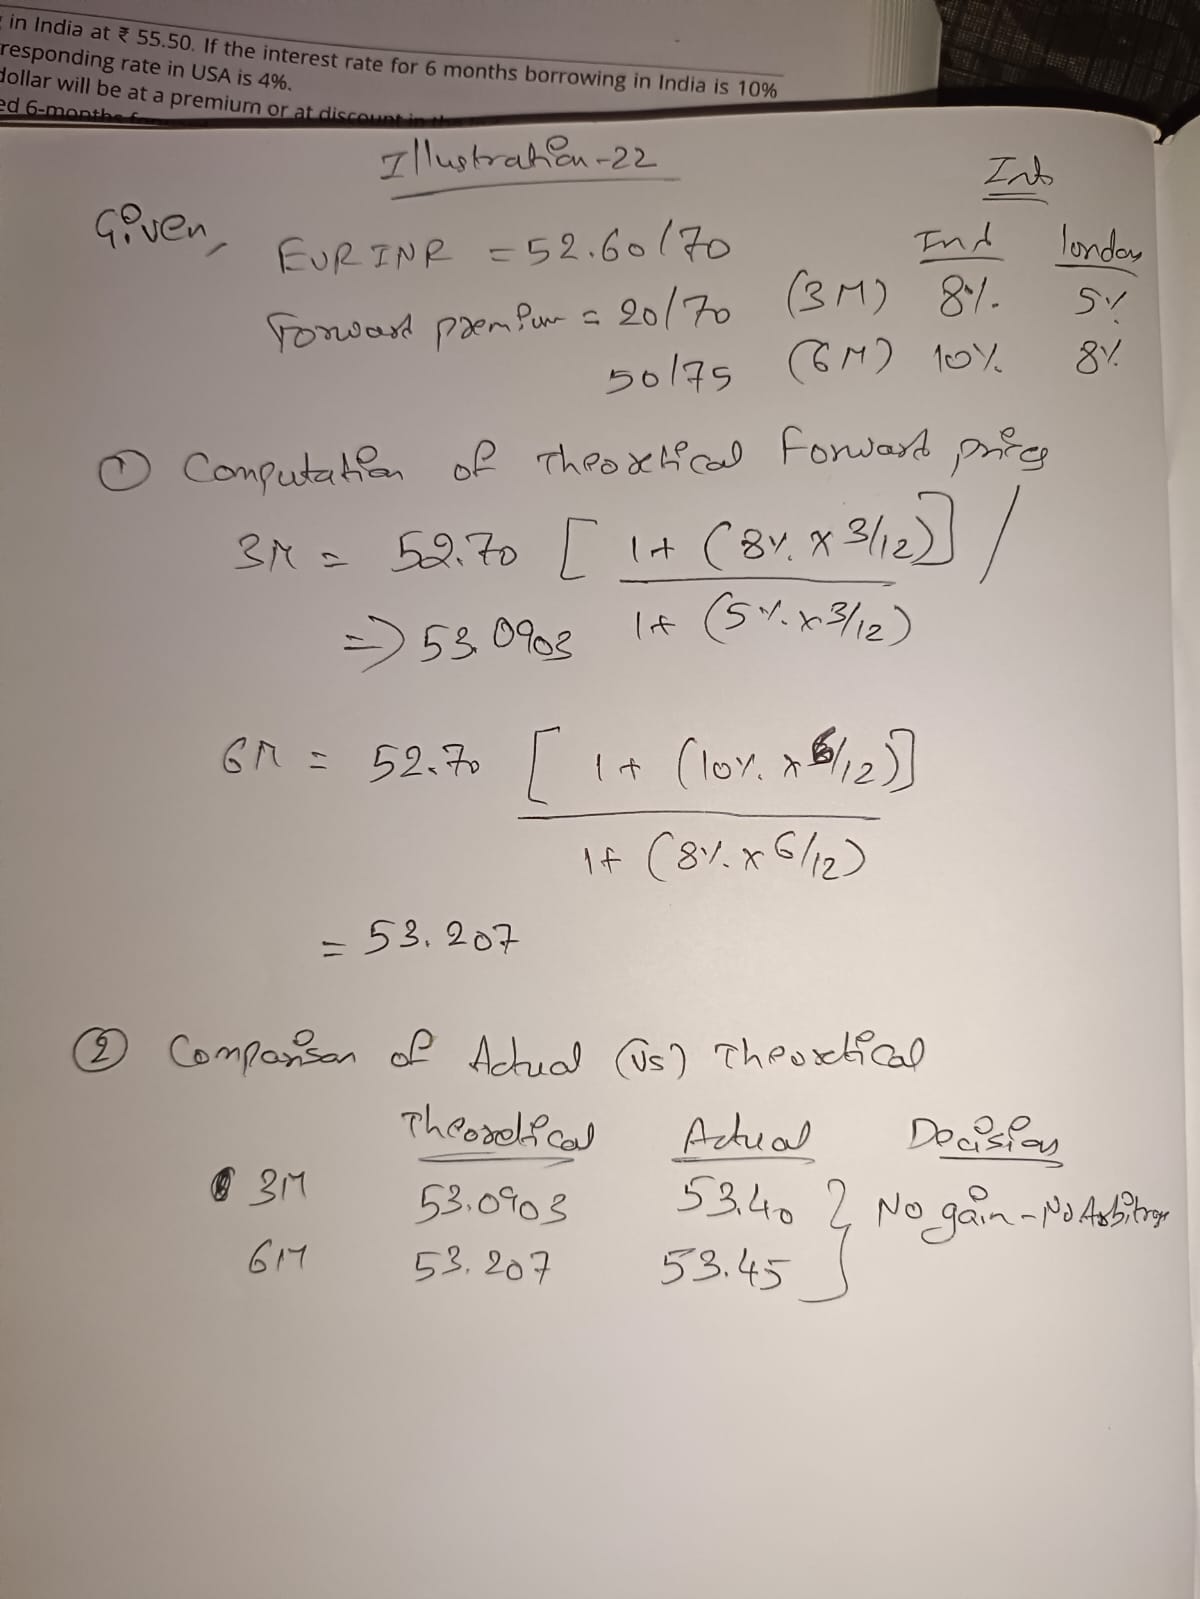 in India at ₹ 55.50. If the interest rate for 6 months borrowing in India is 10%
responding rate in USA is 4%.
dollar will be at a premium or at discount in the
ed 6-months
Illustration-22
Int
Given,
EURINR = 52.60/70
Ind London
Forward premium = 20/70 (3M) 8% 5%
50/75 (6M) 10% 8%
① Computation of Theoretical Forward price
3M = 52.70 [ 1+ (8% x 3/12)] /
1+ (5% x 3/12)
=> 53.0903
6M = 52.70 [ 1+ (10% x 6/12)]
1+ (8% x 6/12)
= 53.207
② Comparison of Actual (Vs) Theoretical
Theoretical Actual Decision
3M 53.0903 53.40 } No gain - No Arbitrage
6M 53.207 53.45